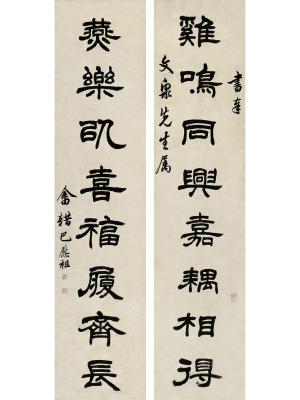 書奉
文泉先生属
雞鳴同興嘉耦相得
燕樂㕥喜福履齊長
巴慰祖